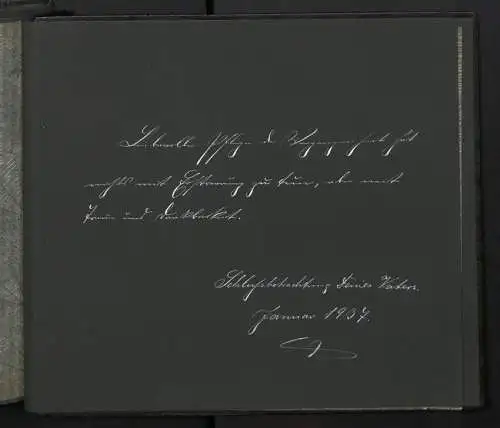 Liebevolle Pflege der Vergangenheit hat
nichts mit Erstarrung zu tun, aber mit
Treue und Dankbarkeit.
Schlussbetrachtung Deines Vaters.
Januar 1937.